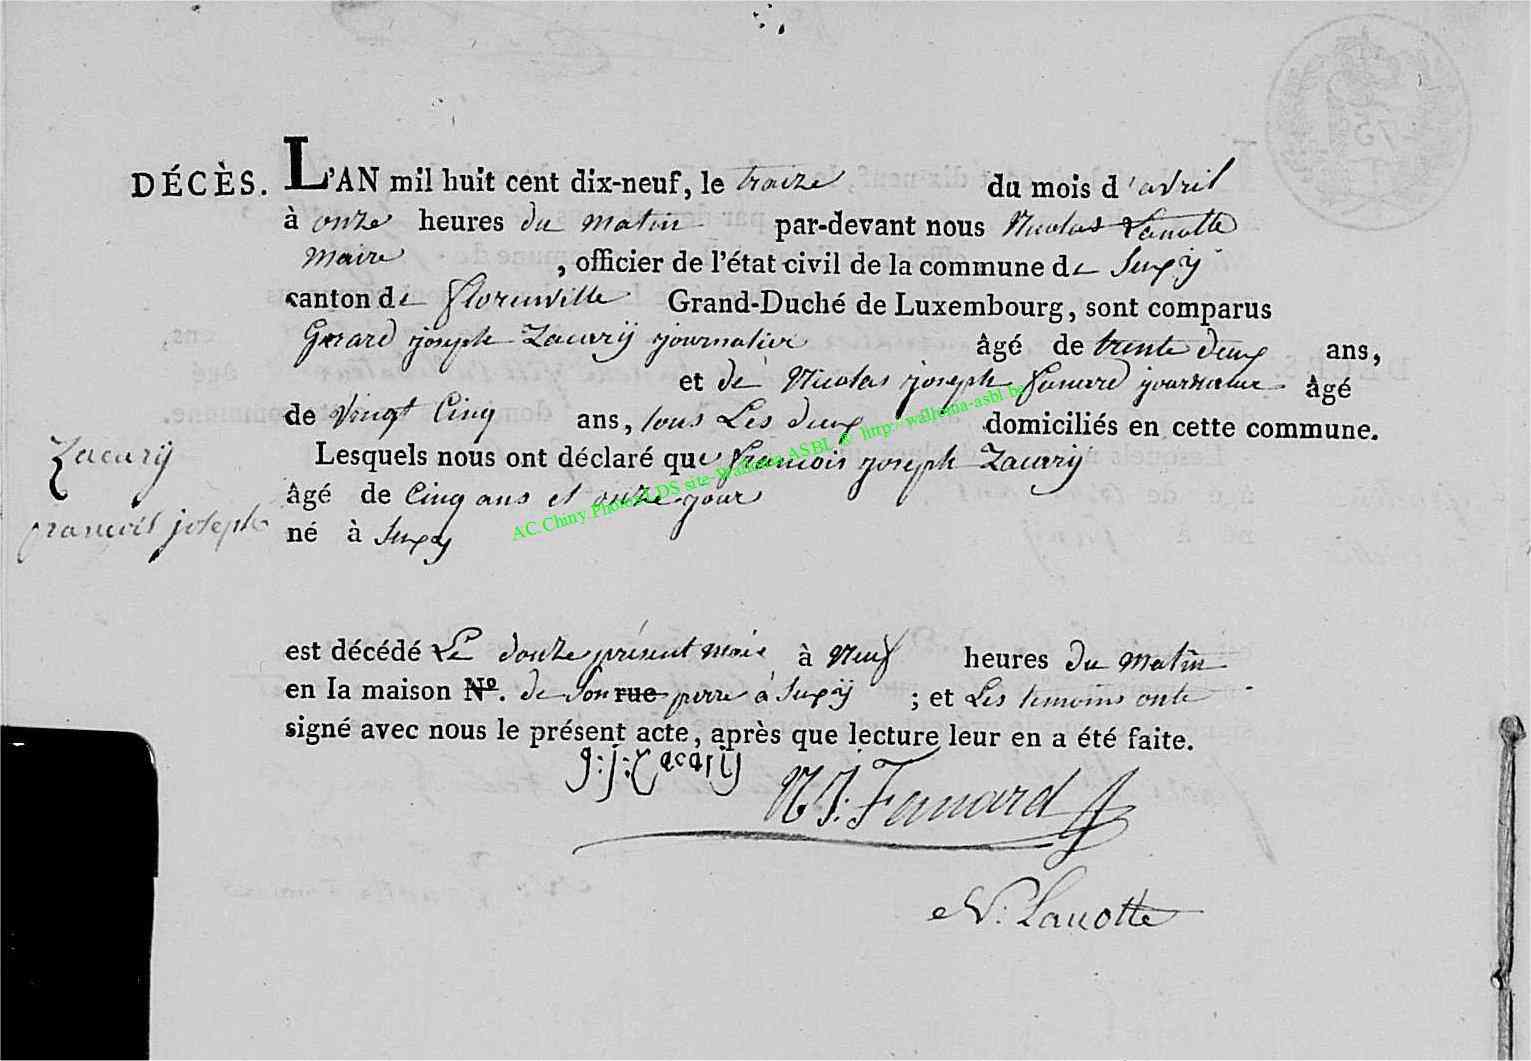 DÉCÈS. L'AN mil huit cent dix-neuf, le traize du mois d'avril
à onze heures du matin par-devant nous Nicolas Lanotte
maire , officier de l'état civil de la commune de Suxÿ
canton de florenville Grand-Duché de Luxembourg, sont comparus
Gerard joseph Zacarÿ journalier âgé de trente deux ans,
et de Nicolas joseph fanard journalier âgé
de vingt Cinq ans, tous Les deux domiciliés en cette commune.
Lesquels nous ont déclaré que francois joseph Zacarÿ
âgé de Cinq ans et onze jour
né à Suxÿ
Zacarÿ
françois joseph
est décédé Le douze présent mois à Neuf heures du matin
en la maison Nº. de son rue perre à Suxÿ ; et Les temoins onte
signé avec nous le présent acte, après que lecture leur en a été faite.
g:j:Zacarij
N J: Fanard
N: Lanotte
AC.Chiny.Photos LDS site-Wallonia ASBL © http://wallonia-asbl.be
75